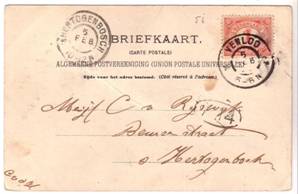 51
'SHERTOGENBOSCH
5
FEB
BRIEFKAART.
(CARTE POSTALE)
VENLOO
5
FEB
ALGEMEENE POSTVEREENIGING (UNION POSTALE UNIVERSELLE)
Zijde voor het adres bestemd. (Côté réservé à l'adresse.)
Mejf C v Rijswijk
straat
s Hertogenbosch